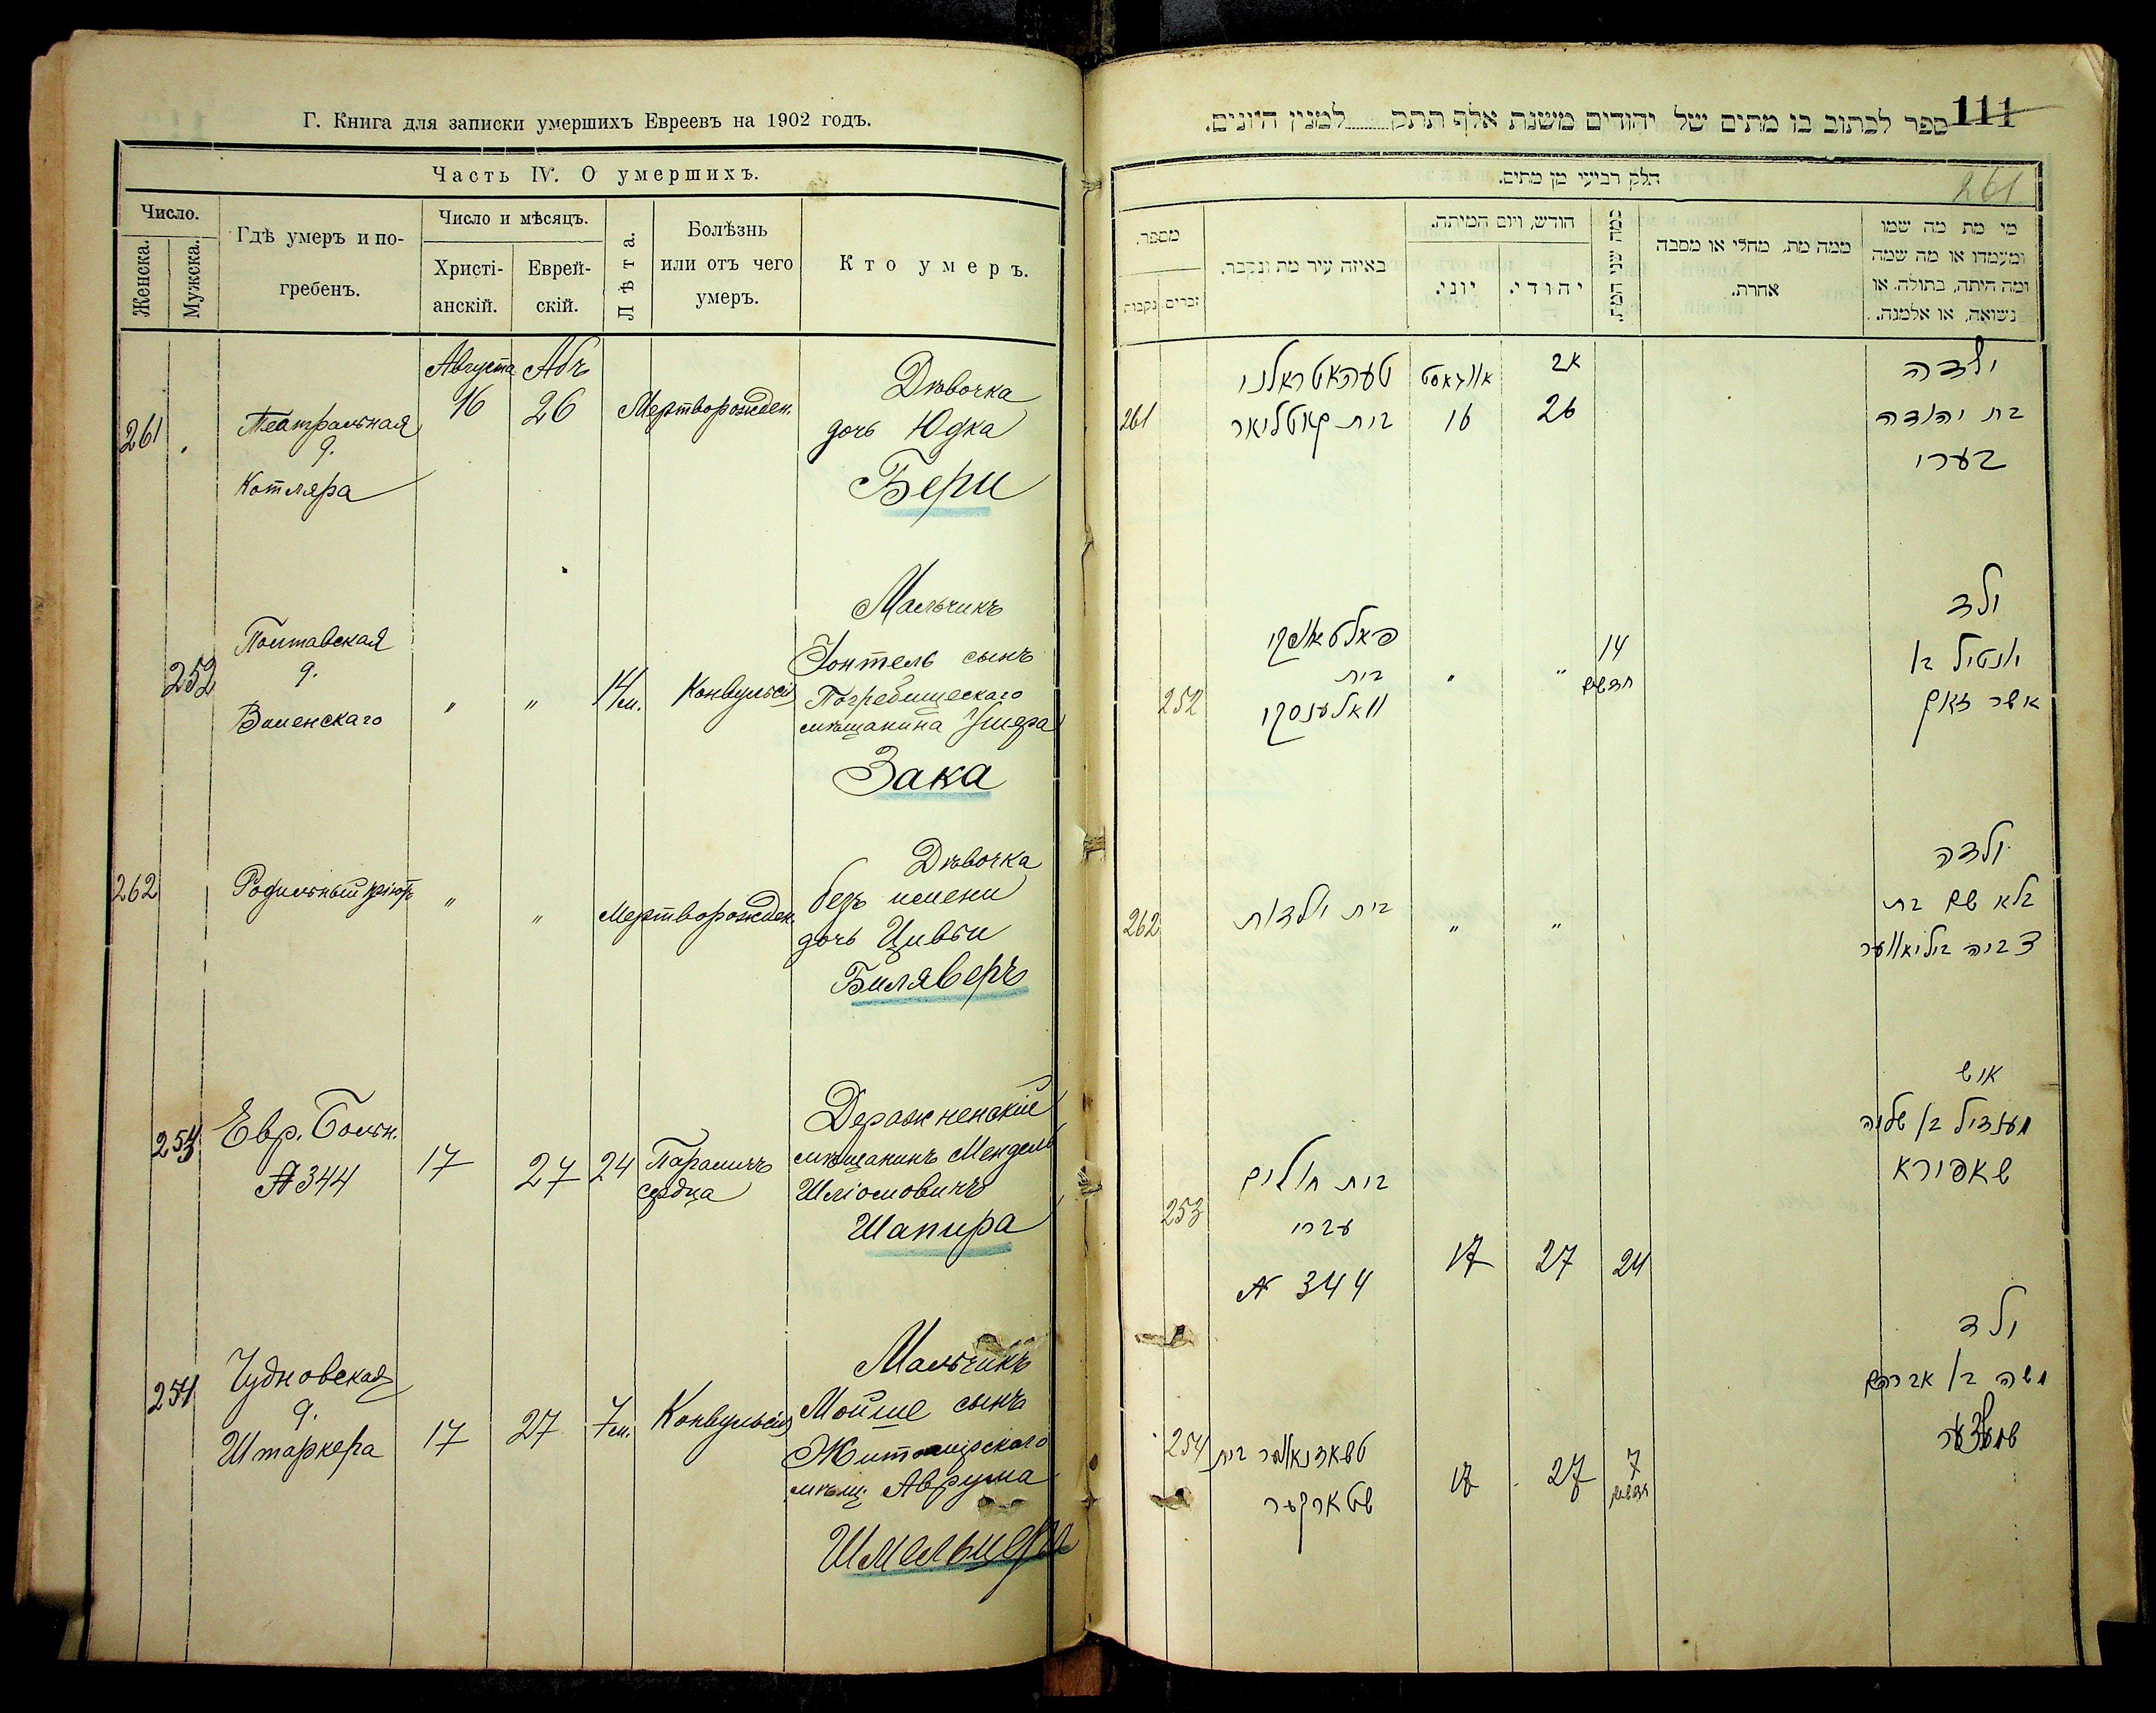 Г. Книга для записки умершихъ Евреевъ на 1902 годъ.
Часть IV. О умершихъ.
Число.
Женска.
Мужска.
Гдѣ умеръ и по-
гребенъ.
Число и мѣсяцъ.
Христі-
анскій.
Еврей-
скій.
Лѣта.
Болѣзнь
или отъ чего
умеръ.
Кто умеръ.
Августа Абъ
261 Театральная 16 26 Мертворожден. Дѣвочка
д.
Котляра
дочь Юдка
Бери
252 Полтавская
д.
Виленскаго
" " 14 м. Конвульсія
Мальчикъ
Зонтель сынъ
Погребищескаго
мѣщанина Ушера
Зака
262 Родильный " " Мертворожден.
Дѣвочка
безъ имени
дочь Цивьи
Биляверъ
253 Евр. Больн.
№ 344
17 27 24 Параличъ
сердца
Деражненскій
мѣщанинъ Мендель
Шліомовичъ
Шапира
254 Чудновская
д.
Штаркера
17 27 7 м. Конвульсія
Мальчикъ
Мойше сынъ
Житомирскаго
мѣщ. Аврума
Шмельцера
111
ספר לכתוב בו מתים של יהודים משנת אלף תתק למנין היונים.
261
חלק רביעי מן מתים.
מי מת מה שמו
ומעמדו או מה שמה
ומה היתה, בתולה, או
נשואה, או אלמנה.
ממה מת, מחלי או מסבה
אחרת.
כמה שני המת.
חודש, ויום המיתה.
יהודי.
יוני.
באיזה עיר מת ונקבר.
מספר.
זכרים
נקבות
ילדה
בת יהודה
בערי
אב
26
אווגוסט
16
טעהאטראלני
בית קאטליאר
261
ילד
יונטיל בן
אשר זאק
14
חדשים
" "
פאלטאווסקי
בית
וואלענסקי
252
ילדה
בלא שם בת
צביה ביליאווער
" "
בית יולדות
262
איש
מענדיל בן שלמה
שאפירא
24 27 17
בית חולים
עברי
№ 344
253
ילד
משה בן אברהם
7
חדשים
27 17
טשאדנאווער בית
שטארקער
254